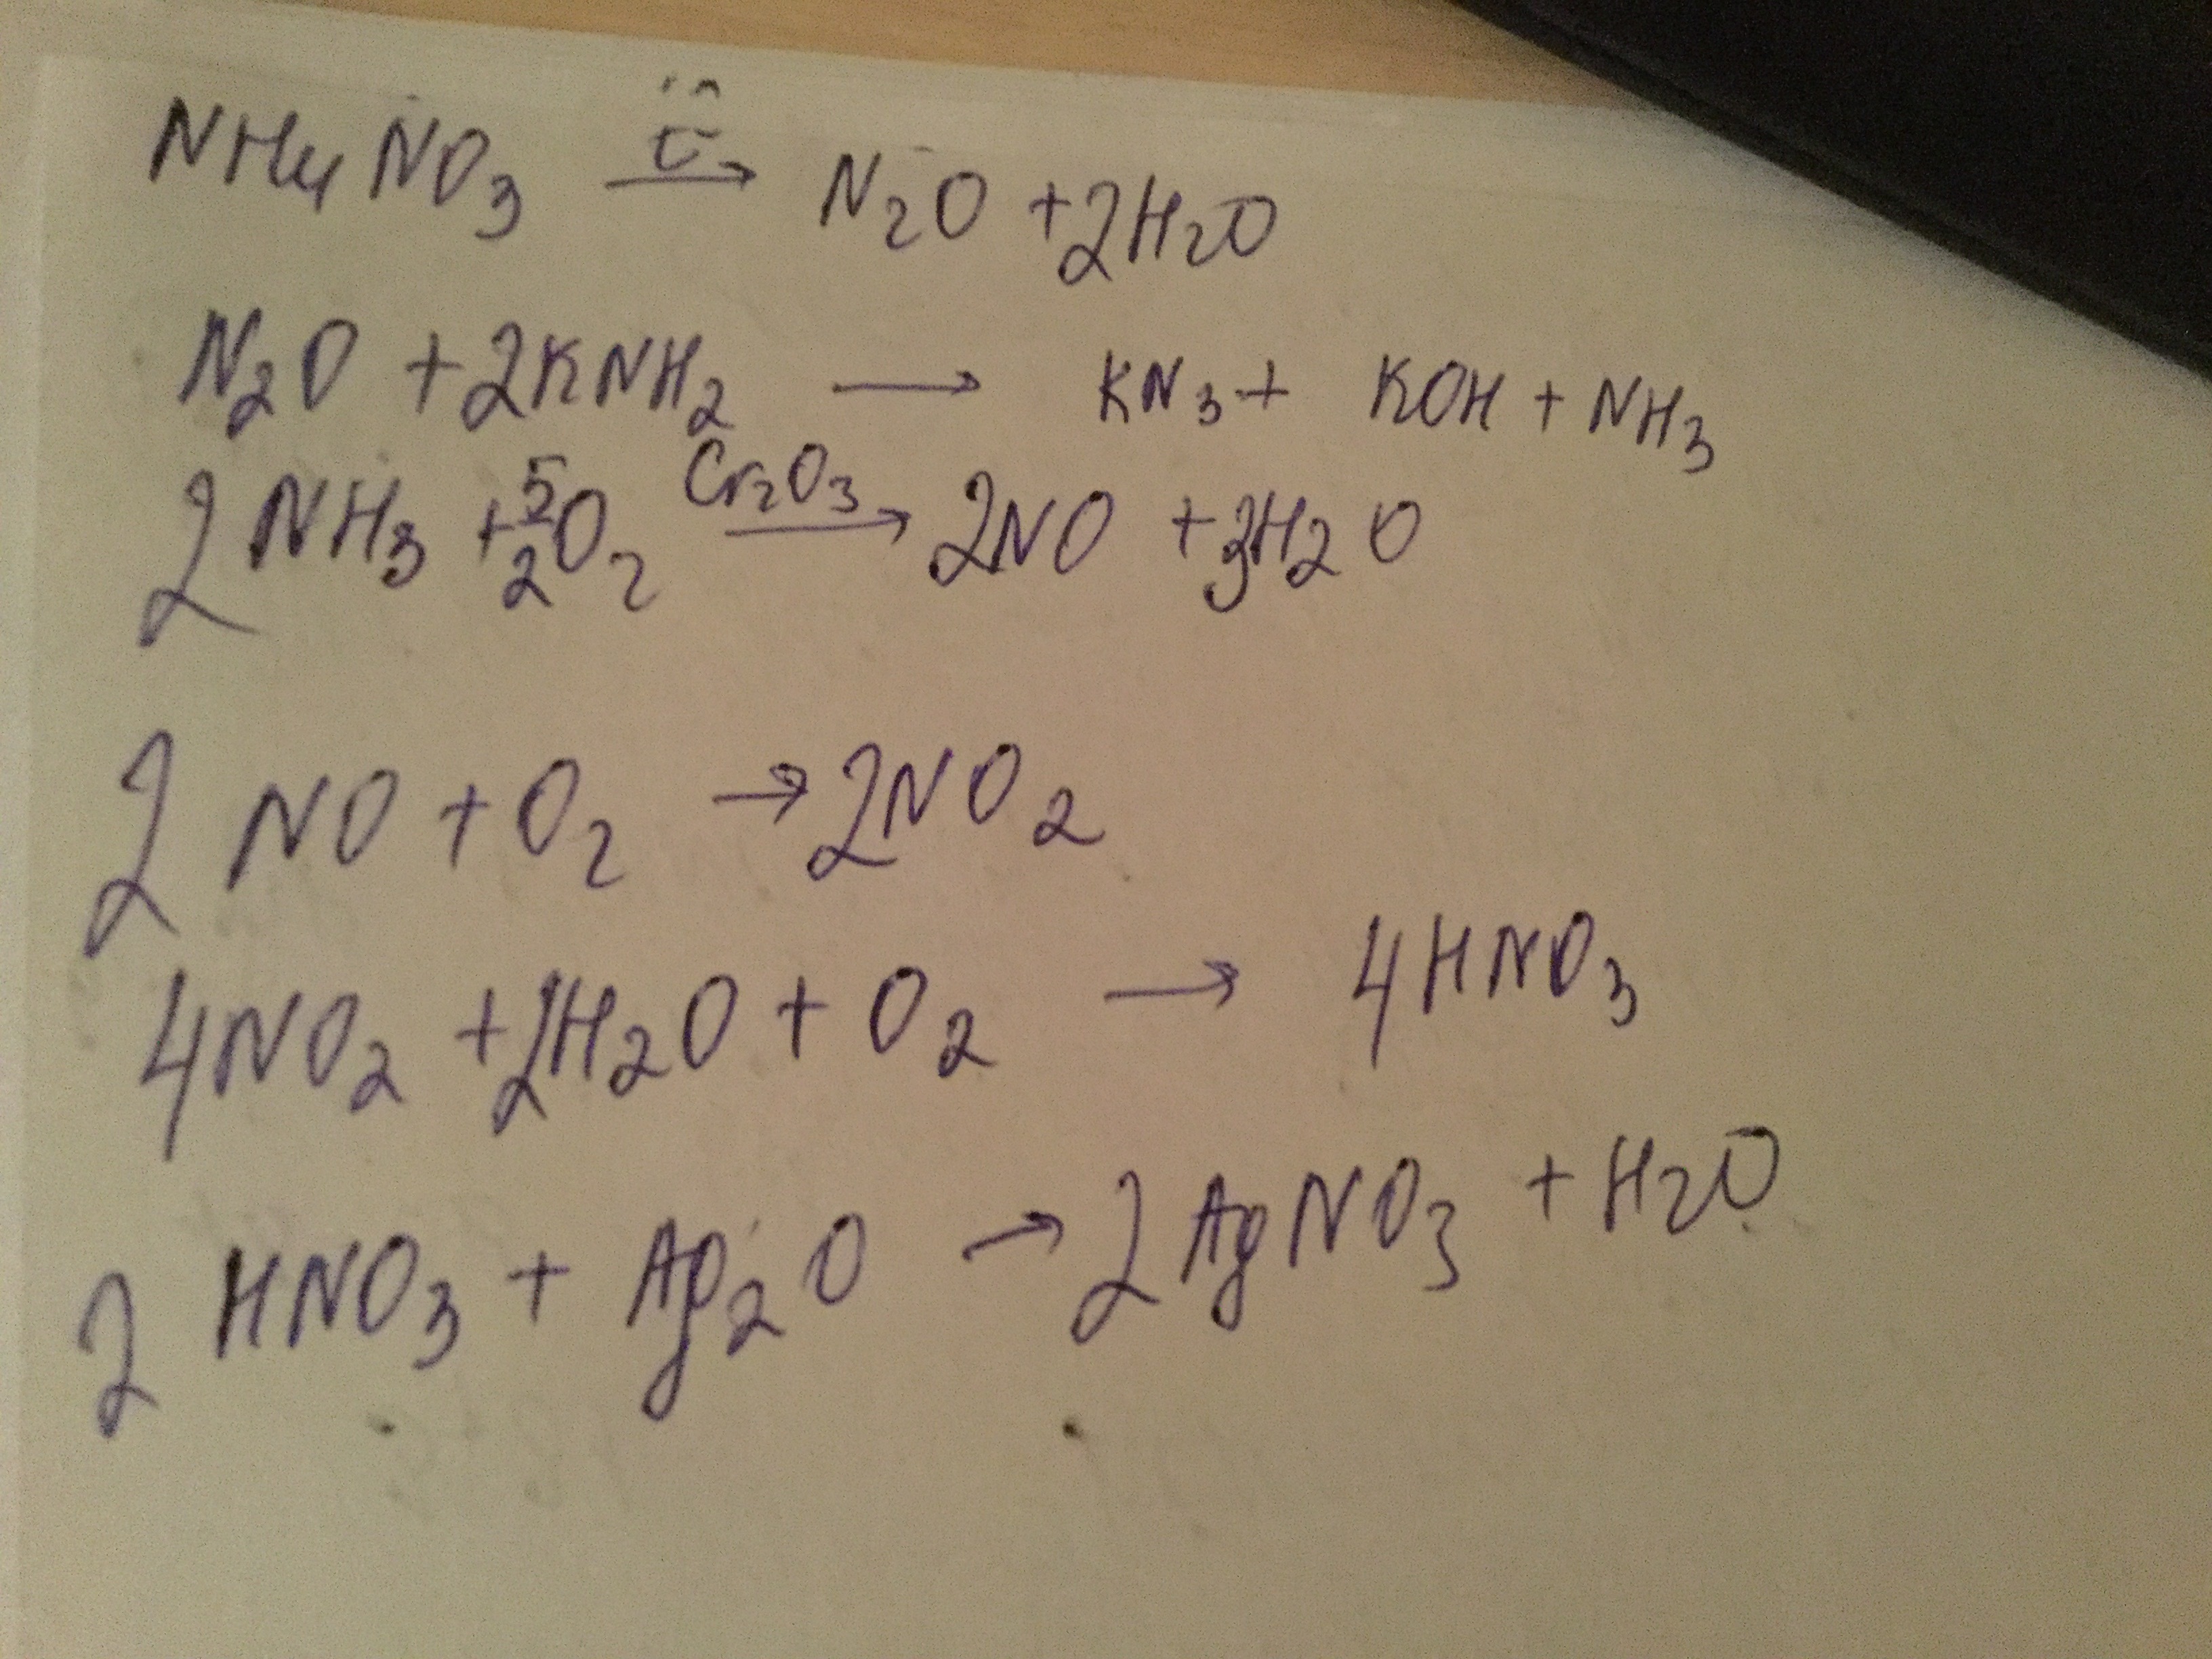 NH₄NO₃ →(t) N₂O + 2H₂O
N₂O + 2KNH₂ → KN₃ + KOH + NH₃
2NH₃ + 5/2O₂ →(Cr₂O₃) 2NO + 3H₂O
2NO + O₂ → 2NO₂
4NO₂ + 2H₂O + O₂ → 4HNO₃
2HNO₃ + Ag₂O → 2AgNO₃ + H₂O